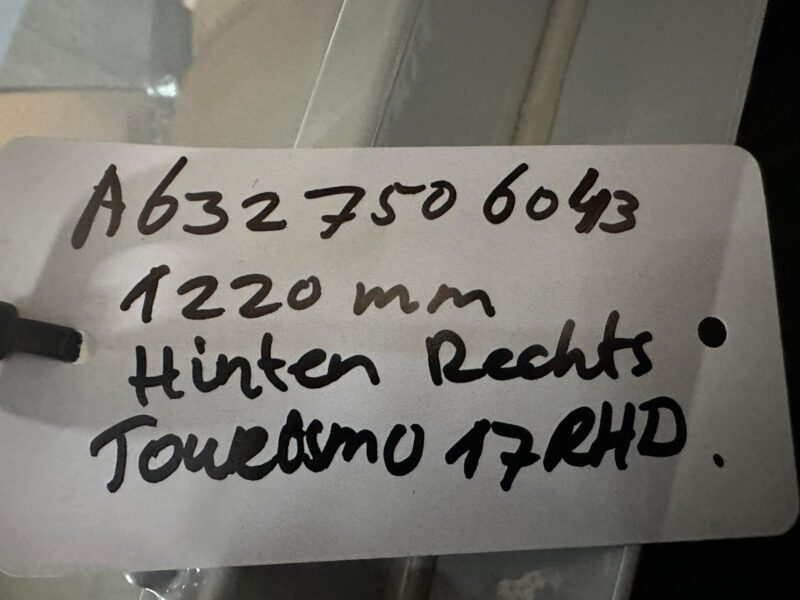 A632 750 6043
1220 mm
Hinten Rechts
Tourismo 17RHD.